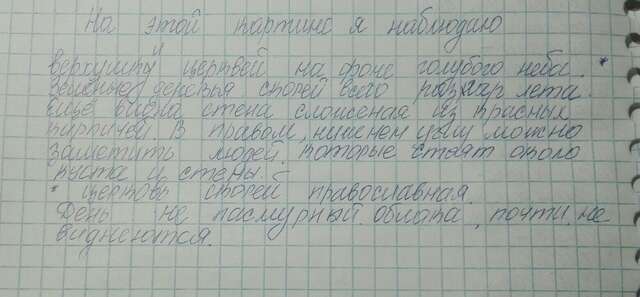 На этой картине я наблюдаю
верхушку церквей на фоне голубого неба. *
Зеленые деревья скорей всего разгар лета.
Еще видна стена сложеная из красных
кирпичей. В правом, нижнем углу можно
заметить людей, которые стоят около
куста и стены.
* церковь скорей православная.
День не пасмурный облака, почти не
виднеются.